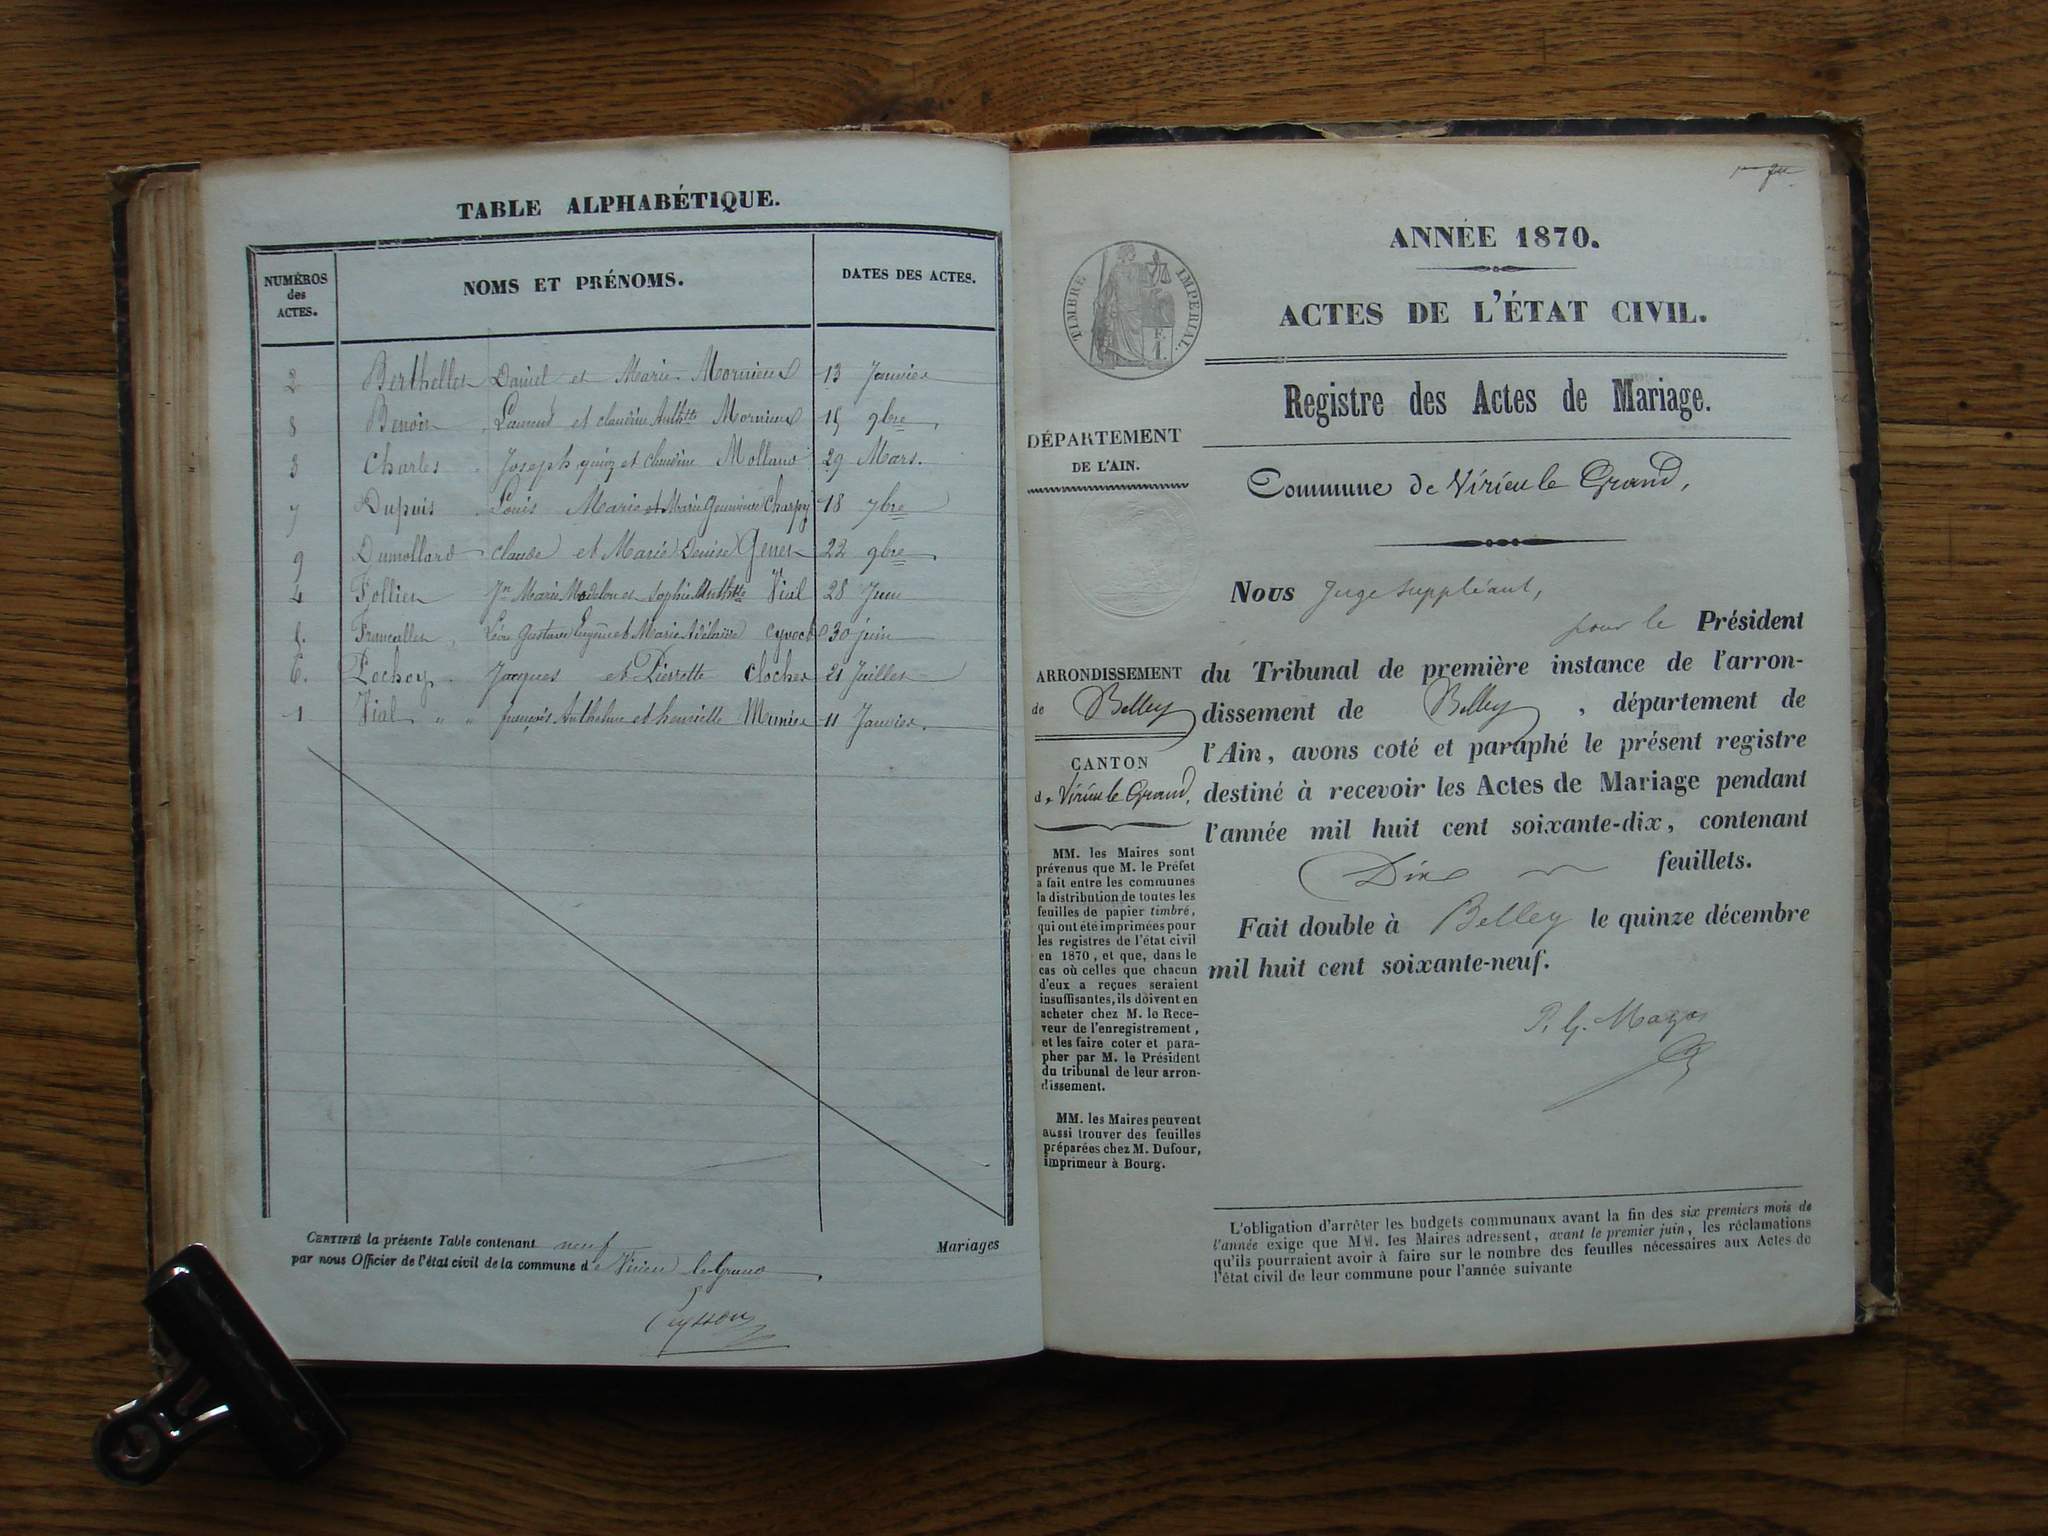 TABLE ALPHABÉTIQUE.
NUMÉROS
des
ACTES.
NOMS ET PRÉNOMS.
DATES DES ACTES.
2 Berthellet Daniel et Marie Mornieux 13 Janvier
8 Benoit Laurent et claudine Anthtte Mornieux 15 9bre
3 Charles Joseph et claudine Mollard 29 Mars.
7 Dupuis Louis Marie et Marie Genevieve Charpy 18 7bre
9 Dumollard claude et Marie Denise Genet 22 9bre
4 Jn Marie et Sophie Vial 28 Juin
Léon Gustave Eugène et Marie Adélaïde 30 juin
6. Pechoy Jacques et Pierrette Clochet 21 Juillet
1 Vial " " françois Anthelme et henriette Munier 11 Janvier.
CERTIFIÉ la présente Table contenant neuf Mariages
par nous Officier de l'état civil de la commune de Virieu le Grand
ANNÉE 1870.
ACTES DE L'ÉTAT CIVIL.
TIMBRE IMPÉRIAL.
Registre des Actes de Mariage.
DÉPARTEMENT
DE L'AIN.
Commune de Virieu le Grand,
Nous Juge Suppléant,
pour le Président
du Tribunal de première instance de l'arron-
dissement de Belley, département de
l'Ain, avons coté et paraphé le présent registre
destiné à recevoir les Actes de Mariage pendant
l'année mil huit cent soixante-dix, contenant
Dix feuillets.
Fait double à Belley le quinze décembre
mil huit cent soixante-neuf.
ARRONDISSEMENT
de Belley
CANTON
de Virieu le Grand,
MM. les Maires sont
prévenus que M. le Préfet
a fait entre les communes
la distribution de toutes les
feuilles de papier timbré,
qui ont été imprimées pour
les registres de l'état civil
en 1870, et que, dans le
cas où celles que chacun
d'eux a reçues seraient
insuffisantes, ils doivent en
acheter chez M. le Rece-
veur de l'enregistrement,
et les faire coter et para-
pher par M. le Président
du tribunal de leur arron-
dissement.
MM. les Maires peuvent
aussi trouver des feuilles
préparées chez M. Dufour,
imprimeur à Bourg.
L'obligation d'arrêter les budgets communaux avant la fin des six premiers mois de
l'année exige que MM. les Maires adressent, avant le premier juin, les réclamations
qu'ils pourraient avoir à faire sur le nombre des feuilles nécessaires aux Actes de
l'état civil de leur commune pour l'année suivante